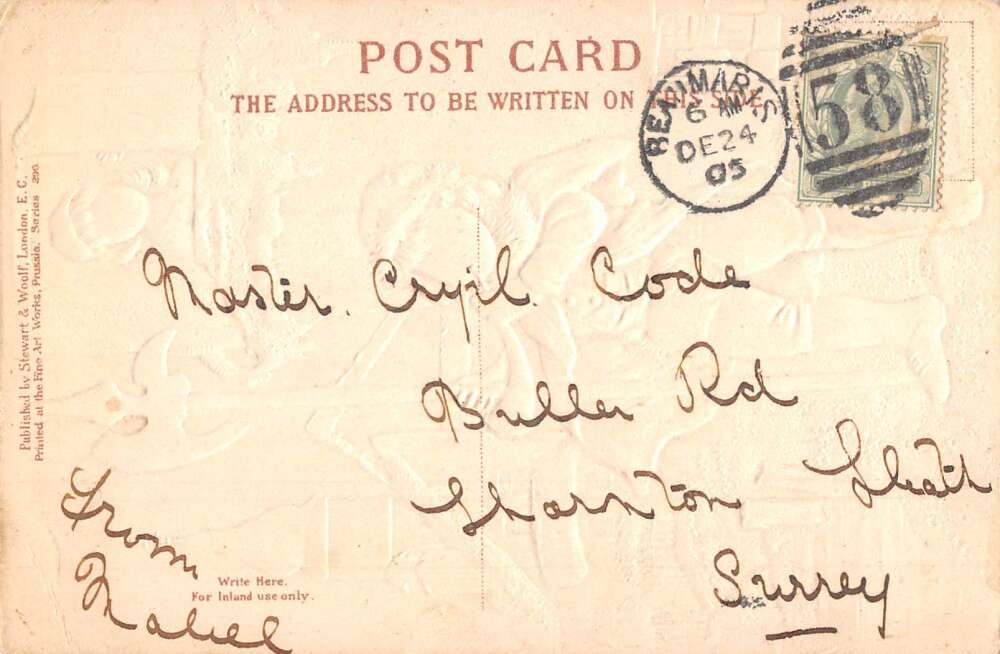 POST CARD
THE ADDRESS TO BE WRITTEN ON THIS SIDE
BEAUMARIS
6 AM
DE 24
05
58
Published by Stewart & Woolf, London, E. C.
Printed at the Fine Art Works, Prussia. Series 290
Master. Cryil. Code
Buller Rd
Thornton Heath
Surrey
From
Mabell
Write Here.
For Inland use only.